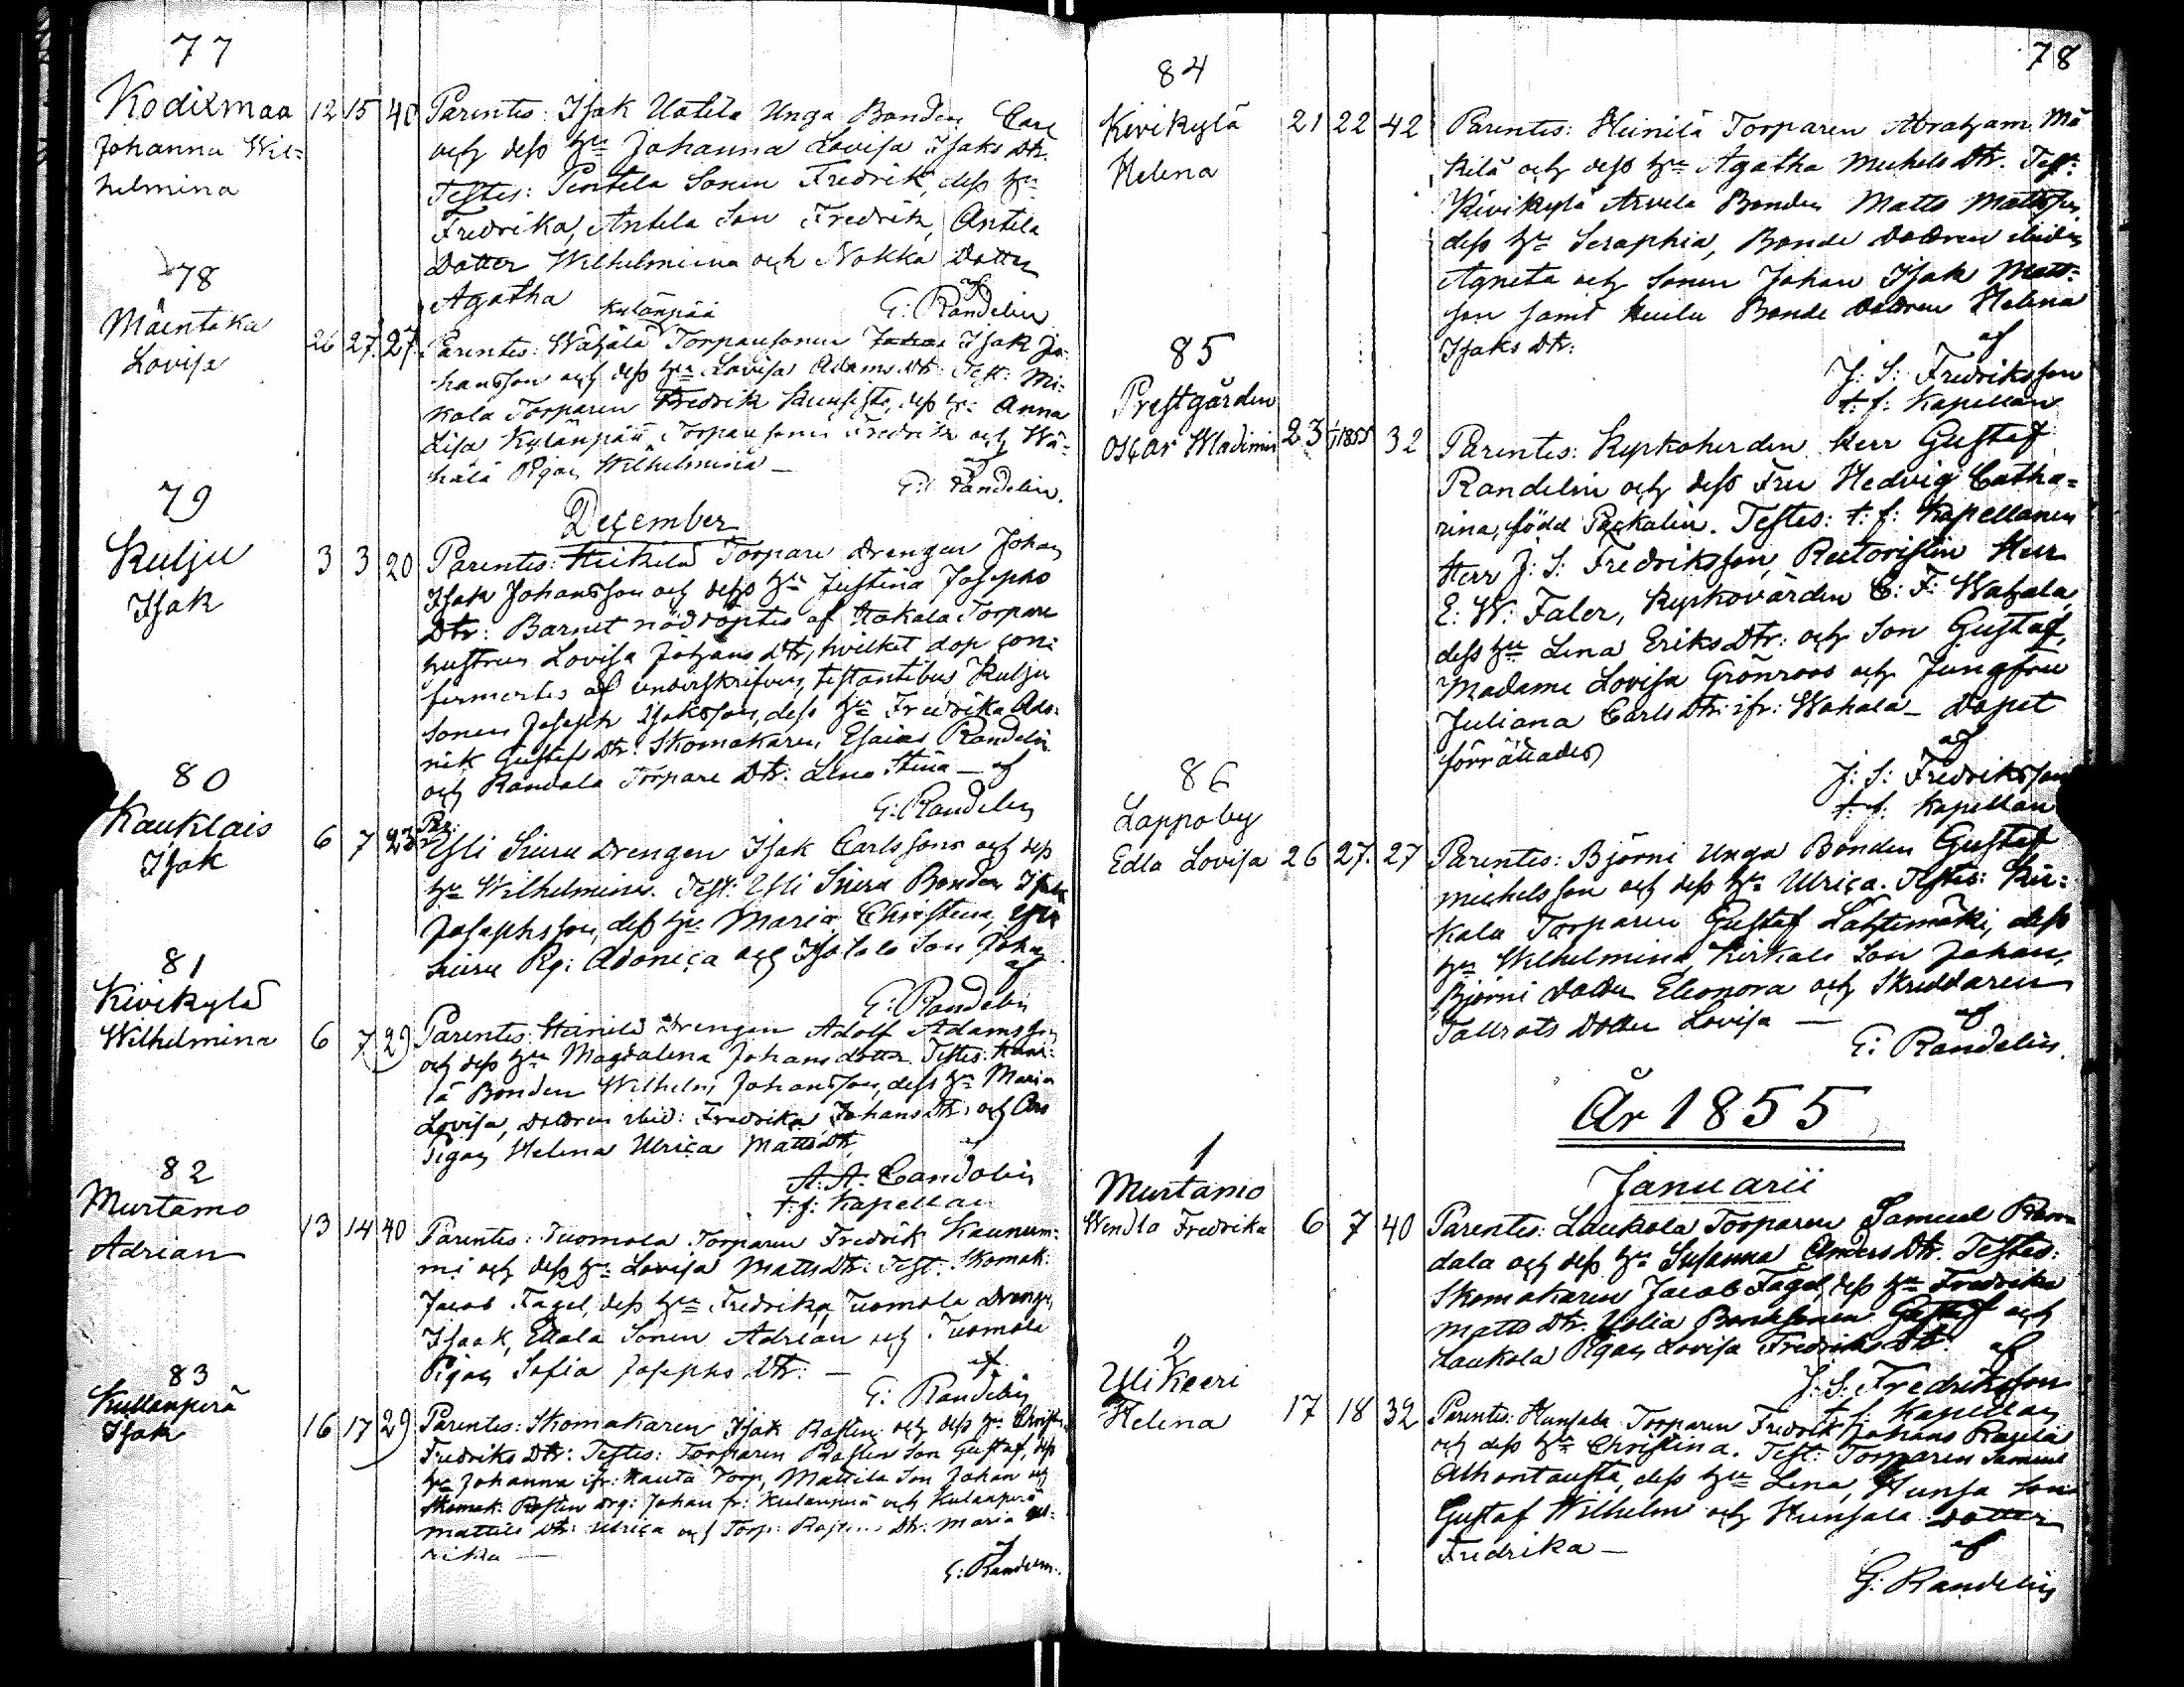 77
Kodixmaa 12 15 40 Parentes: Isak Uotila Unga Bonden Carl
Johanna Wil= och dess hu Johanna Lovisa Isaks Dtr.
helmina Testes: Pentela Sonen Fredrik, dess hu
Fredrika, Antila Son Fredrik, Antila
Dotter Wilhelmina och Nokka Dotter
Agatha af
G: Randelin
78
Kylänpää
Mäentaka 26 27. 27. Parentes: Wähälä Torparesonen Johan Isak Jo=
Lovisa hansson och dess hu Lovisa Adams Dtr: Test: Mi=
kola Torparen Fredrik dess hu: Anna
Lisa Kylänpää Torpare sonen Fredrik och Wä=
hälä Pigan Wilhelmina — af
G: Randelin.
December
79
Kulju 3 3 20 Parentes: Heikilä Torpare Drengen Johan
Isak Isak Johansson och dess hu Justina Josephs
Dtr: Barnet nöddöptes af Hakala Torpare
hustrun Lovisa Johans Dtr, hvilket dop con=
firmertes af underskrifven, testantibus Kulju
Sonen Joseph Isaksson, dess hu Fredrika
Gustafs Dtr: Skomakaren Esaias Randelin
och Randala Torpare Dtr: Lena Stina — af
G: Randelin
80
Kauklais 6 7 23 Par:
Isak Ylli Siuru Drengen Isak Carlsson och dess
hu Wilhelmina. Test: Ylli Siuru Bonden Isak
Josephsson, dess hu: Maria Christina, Ylli
Siuru Pig: Adonica och Isotalo Son Johan
af
G: Randelin
81
Kivikylä
Wilhelmina 6 7 29 Parentes: Heinilä Drengen Adolf Adamsson
och dess hu Magdalena Johans dotter Testes: Heini=
lä Bonden Wilhelm Johansson, dess hu Maria
Lovisa, dottren ibid: Fredrika Johans Dtr: och
Pigan Helena Ulrica Matts Dtr. af
A. A. Candolin
t. f: Kapellan
82
Murtamo 13 14 40 Parentes: Tuomola Torparen Fredrik Kaunum=
Adrian mi och dess hu Lovisa Matts Dtr: Test: Skomak:
Jacob Fagel, dess hu Fredrika, Tuomola Drengen
Isaak, Ettala Sonen Adrian och Tuomola
Pigan Sofia Josephs Dtr: — af
G: Randelin
83
Kullanperä
Isak 16 17 29 Parentes: Skomakaren Isak Rosten och dess hu Christina
Fredriks Dtr: Testes: Torparen Rosten Son Gustaf, dess
hu Johanna ifr: Hauta Torp, Mattila Son Johan och
Skomak: Rosten Drg: Johan fr: Kulanperä och Kulanperä
Mattila Dtr: Ulrica och Torp: Rostens Dtr: Maria
rika — af
G: Randelin.
78
84
Kivikylä 21 22 42 Parentes: Heinilä Torparen Abraham Mä
Helena kilä och dess hu Agatha Michels Dtr. Test:
Kivikylä Arvela Bonden Matts Mattsson
dess hu Seraphia, Bonde dottren ibidem
Agneta och Sonen Johan Isak Matts=
son samt Bonde dottren Helena
Isaks Dtr: af
J: S: Fredriksson
t: f: Kapellan
85
Prestgården
Oscar Wladimir 23 1/1 1855 32 Parentes: Kyrkoherden Herr Gustaf
Randelin och dess Fru Hedvig Catha=
rina, född Packalin. Testes: t: f: Kapellanen
Herr J: S: Fredriksson, Rectoristen Herr
E: W: Faler, Kyrkovärden C: F: Wahala,
dess hu Lena Eriks Dtr: och Son Gustaf,
Madame Lovisa Grönroos och Jungfru
Juliana Carls Dtr: ifr: Wahala — Dopet
förrättades af
J: S: Fredriksson
t. f. Kapellan
86
Lappoby
Edla Lovisa 26 27. 27 Parentes: Björni Unga Bonden Gustaf
Michelsson och dess hu Ulrica. Testes: Kir=
kala Torparen Gustaf Lähtemäki, dess
hu Wilhelmina, Kirkala Son Johan,
Björni dotter Eleonora och Skreddaren
Tallrots Dotter Lovisa — af
G: Randelin.
År 1855
Januarii
1
Murtamo
Wendla Fredrika 6 7 40 Parentes: Laukola Torparen Samuel Ran
dala och dess hu Susanna Anders Dtr. Testes:
Skomakaren Jacob Fagel, dess hu Fredrika
Matts Dtr. Yölia Gustaf och
Laukola Pigan Lovisa Fredriks Dtr. af
J. S. Fredriksson
t. f. Kapellan
2
Ylikeeri
Helena 17 18 32 Parentes: Hunsala Torparen Fredrik Johans
och dess hu Christina. Test: Torparen Samuel
Alhontausta, dess hu Lena, Hunsa Son
Gustaf Wilhelm och Hunsala Dotter
Fredrika — af
G: Randelin